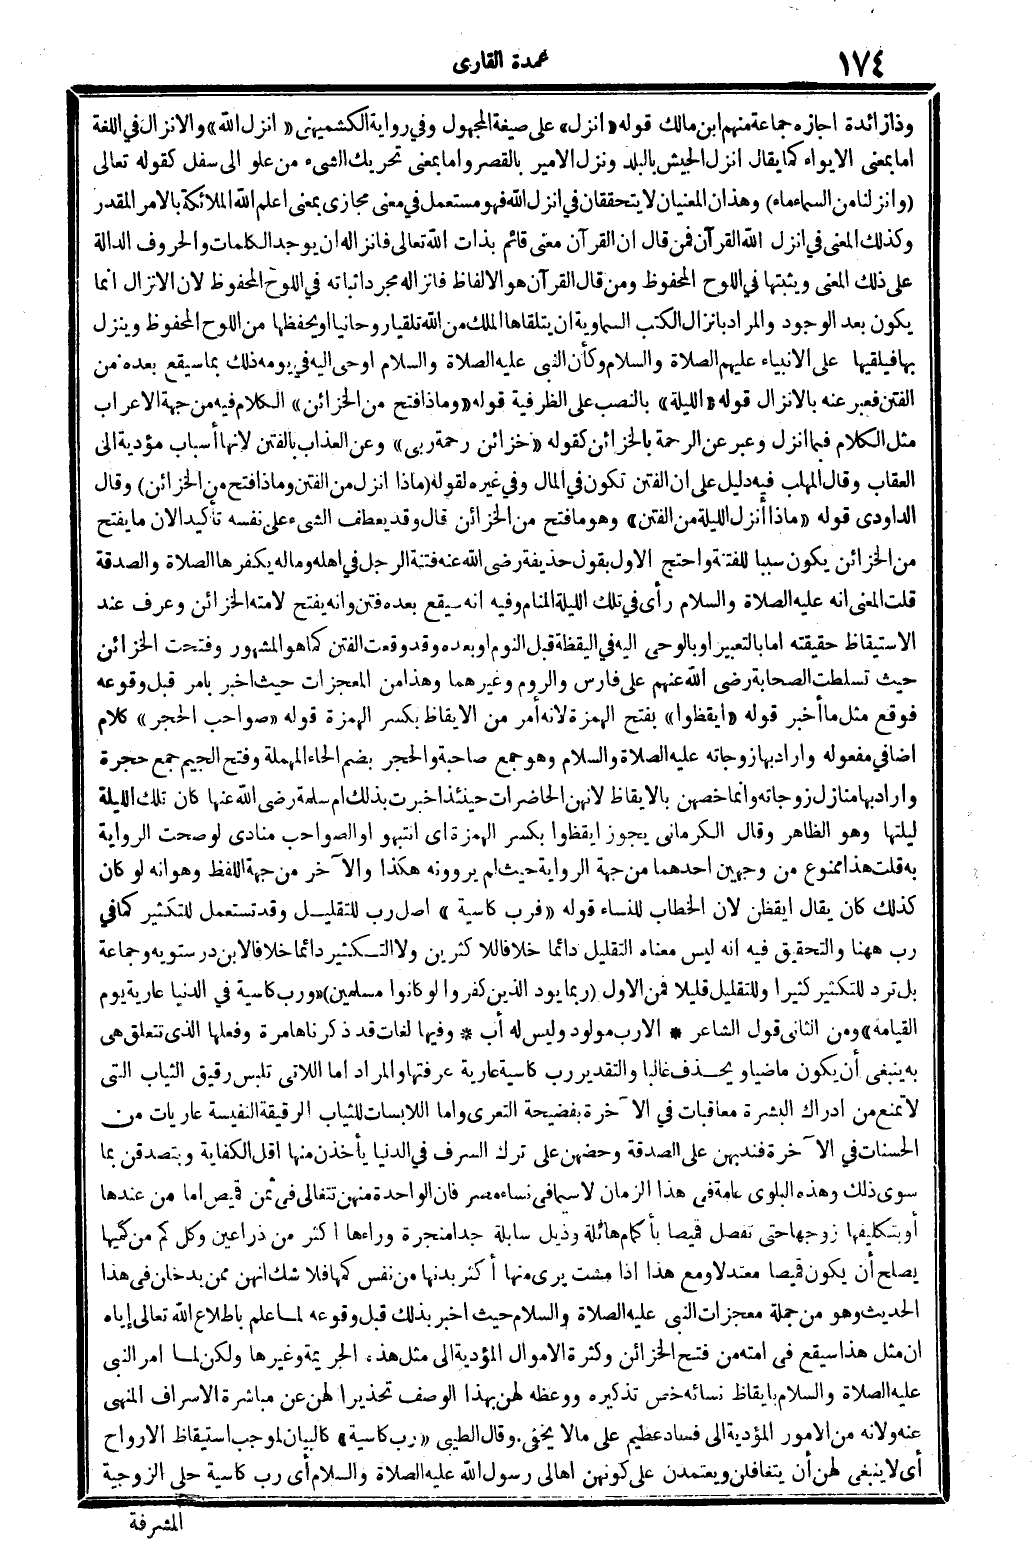 ١٧٤
عمدة القارى
وذا زائدة اجازه جماعة منهم ابن مالك قوله «انزل» على صيغة المجهول وفي رواية الكشميهنى «انزل الله» والانزال في اللغة
اما بمعنى الايواء كما يقال انزل الجيش بالبلد ونزل الامير بالقصر واما بمعنى تحريك الشىء من علو الى سفل كقوله تعالى
(وانزلنا من السماء ماء) وهذان المعنيان لا يتحققان في انزل الله فهو مستعمل في معنى مجازى بمعنى اعلم الله الملائكة بالامر المقدر
وكذلك المعنى في انزل الله القرآن فمن قال ان القرآن معنى قائم بذات الله تعالى فانزاله ان يوجد الكلمات والحروف الدالة
على ذلك المعنى ويثبتها في اللوح المحفوظ ومن قال القرآن هو الالفاظ فانزاله مجرد اثباته في اللوح المحفوظ لان الانزال انما
يكون بعد الوجود والمراد بانزال الكتب السماوية ان يتلقاها الملك من الله تلقيا روحانيا او يحفظها من اللوح المحفوظ وينزل
بها فيلقيها على الانبياء عليهم الصلاة والسلام وكأن النبى عليه الصلاة والسلام اوحى اليه في يومه ذلك بما سيقع بعده من
الفتن فعبر عنه بالانزال قوله «الليلة» بالنصب على الظرفية قوله «وماذا فتح من الخزائن» الكلام فيه من جهة الاعراب
مثل الكلام فيما انزل وعبر عن الرحمة بالخزائن كقوله «خزائن رحمة ربى» وعن العذاب بالفتن لانها أسباب مؤدية الى
العقاب وقال المهلب فيه دليل على ان الفتن تكون في المال وفي غيره لقوله (ماذا انزل من الفتن وماذا فتح من الخزائن) وقال
الداودى قوله «ماذا أنزل الليلة من الفتن» وهو ما فتح من الخزائن قال وقد يعطف الشىء على نفسه تأكيدا لان ما يفتح
من الخزائن يكون سببا للفتنة واحتج الاول بقول حذيفة رضى الله عنه فتنة الرجل في اهله وماله يكفرها الصلاة والصدقة
قلت المعنى انه عليه الصلاة والسلام رأى في تلك الليلة المنام وفيه انه سيقع بعده فتن وانه يفتح لامته الخزائن وعرف عند
الاستيقاظ حقيقته اما بالتعبير او بالوحى اليه في اليقظة قبل النوم او بعده وقد وقعت الفتن كما هو المشهور وفتحت الخزائن
حيث تسلطت الصحابة رضى الله عنهم على فارس والروم وغيرهما وهذا من المعجزات حيث اخبر بامر قبل وقوعه
فوقع مثل ما أخبر قوله «ايقظوا» بفتح الهمزة لانه أمر من الايقاظ بكسر الهمزة قوله «صواحب الحجر» كلام
اضافي مفعوله واراد بها زوجاته عليه الصلاة والسلام وهو جمع صاحبة والحجر بضم الحاء المهملة وفتح الجيم جمع حجرة
واراد بها منازل زوجاته وانما خصهن بالايقاظ لانهن الحاضرات حينئذ اخبرت بذلك ام سلمة رضى الله عنها كان تلك الليلة
ليلتها وهو الظاهر وقال الكرمانى يجوز ايقظوا بكسر الهمزة اى انتبهو او الصواحب منادى لو صحت الرواية
به قلت هذا ممنوع من وجهين احدهما من جهة الرواية حيث لم يروونه هكذا والآخر من جهة اللفظ وهو انه لو كان
كذلك كان يقال ايقظن لان الخطاب للنساء قوله «فرب كاسية» اصل رب للتقليل وقد تستعمل للتكثير كما في
رب ههنا والتحقيق فيه انه ليس معناه التقليل دائما خلافا للاكثرين ولا التكثير دائما خلافا لابن درستويه وجماعة
بل ترد للتكثير كثيرا وللتقليل قليلا فمن الاول (ربما يود الذين كفروا لو كانوا مسلمين) «ورب كاسية في الدنيا عارية يوم
القيامة» ومن الثانى قول الشاعر * الارب مولود وليس له أب * وفيها لغات قد ذكرناها مرة وفعلها الذى تتعلق هى
به ينبغى أن يكون ماضيا ويحذف غالبا والتقدير رب كاسية عارية عرفتها والمراد اما اللاتى تلبس رقيق الثياب التى
لا تمنع من ادراك البشرة معاقبات في الآخرة بفضيحة التعرى واما اللابسات للثياب الرقيقة النفيسة عاريات من
الحسنات في الآخرة فندبهن على الصدقة وحضهن على ترك السرف في الدنيا يأخذن منها اقل الكفاية ويتصدقن بما
سوى ذلك وهذه البلوى عامة فى هذا الزمان لا سيما فى نساء مصر فان الواحدة منهن تتغالى فى ثمن قميص اما من عندها
أو بتكليفها زوجها حتى تفصل قميصا بأكمام هائلة وذيل سابلة جدا منجرة وراءها اكثر من ذراعين وكل كم من كميها
يصلح أن يكون قميصا معتدلا ومع هذا اذا مشت يرى منها أكثر بدنها من نفس كمها فلا شك انهن ممن يدخلن فى هذا
الحديث وهو من جملة معجزات النبى عليه الصلاة والسلام حيث اخبر بذلك قبل وقوعه لما علم باطلاع الله تعالى إياه
ان مثل هذا سيقع فى امته من فتح الخزائن وكثرة الاموال المؤدية الى مثل هذه الجريمة وغيرها ولكن لما امر النبى
عليه الصلاة والسلام بايقاظ نسائه خص تذكيره ووعظه لهن بهذا الوصف تحذيرا لهن عن مباشرة الاسراف المنهى
عنه ولانه من الامور المؤدية الى فساد عظيم على مالا يخفى. وقال الطيبى «رب كاسية» كالبيان لموجب استيقاظ الارواح
أى لا ينبغى لهن أن يتغافلن ويعتمدن على كونهن اهالى رسول الله عليه الصلاة والسلام أى رب كاسية حلى الزوجية
المشرفة